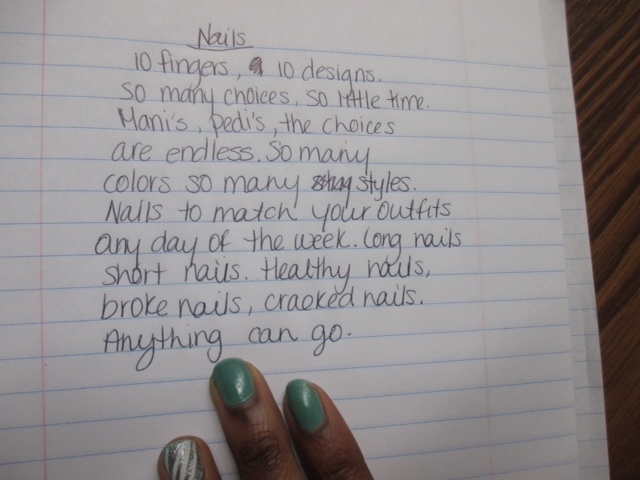 Nails
10 fingers, 10 designs.
So many choices, so little time.
Mani's, pedi's, the choices
are endless. So many
colors so many styles.
Nails to match your outfits
any day of the week. Long nails
short nails. Healthy nails,
broke nails, cracked nails.
Anything can go.